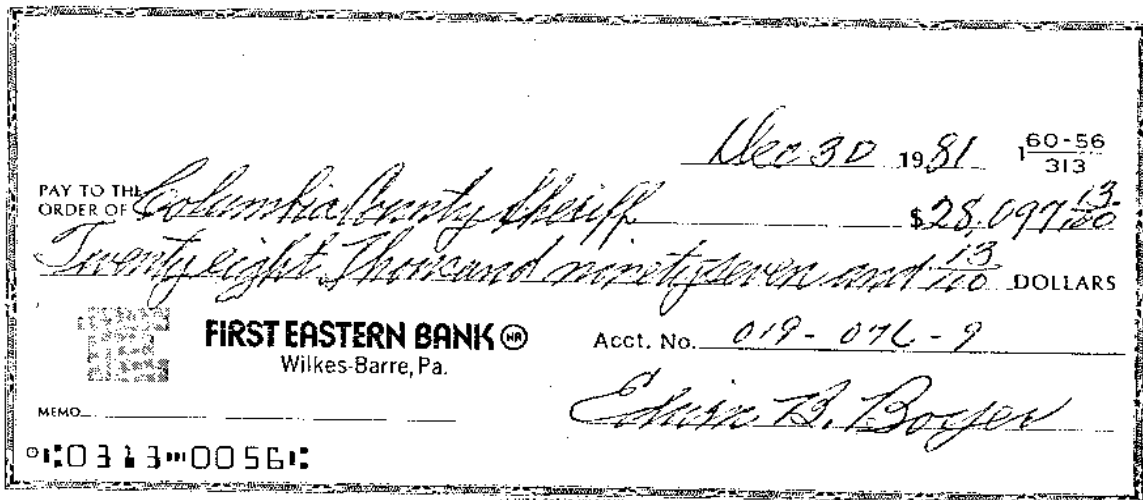 Dec 30 1981 1 60-56
313
PAY TO THE
ORDER OF Columbia County Sheriff $28,097 13/100
Twenty eight Thousand ninety seven and 13/100 DOLLARS
FIRST EASTERN BANK NA
Wilkes-Barre, Pa.
Acct. No. 019-076-9
MEMO
Edwin B. Boyer
⑆0313⑉0056⑆